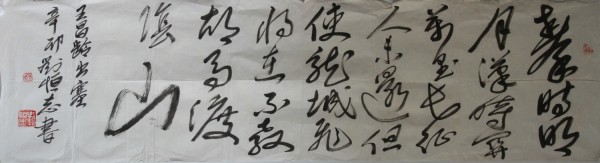 秦時明
月漢時關
萬里長征
人未還但
使龍城飛
將在不教
胡馬渡
陰山
王昌齡出塞
辛卯劉恒志書